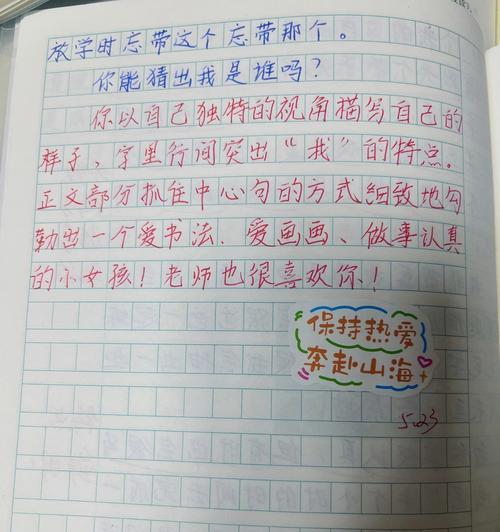 放学时忘带这个忘带那个。
你能猜出我是谁吗？
你以自己独特的视角描写自己的
样子，字里行间突出“我”的特点。
正文部分抓住中心句的方式细致地勾
勒出一个爱书法、爱画画、做事认真
的小女孩！老师也很喜欢你！
保持热爱
奔赴山海
5.23